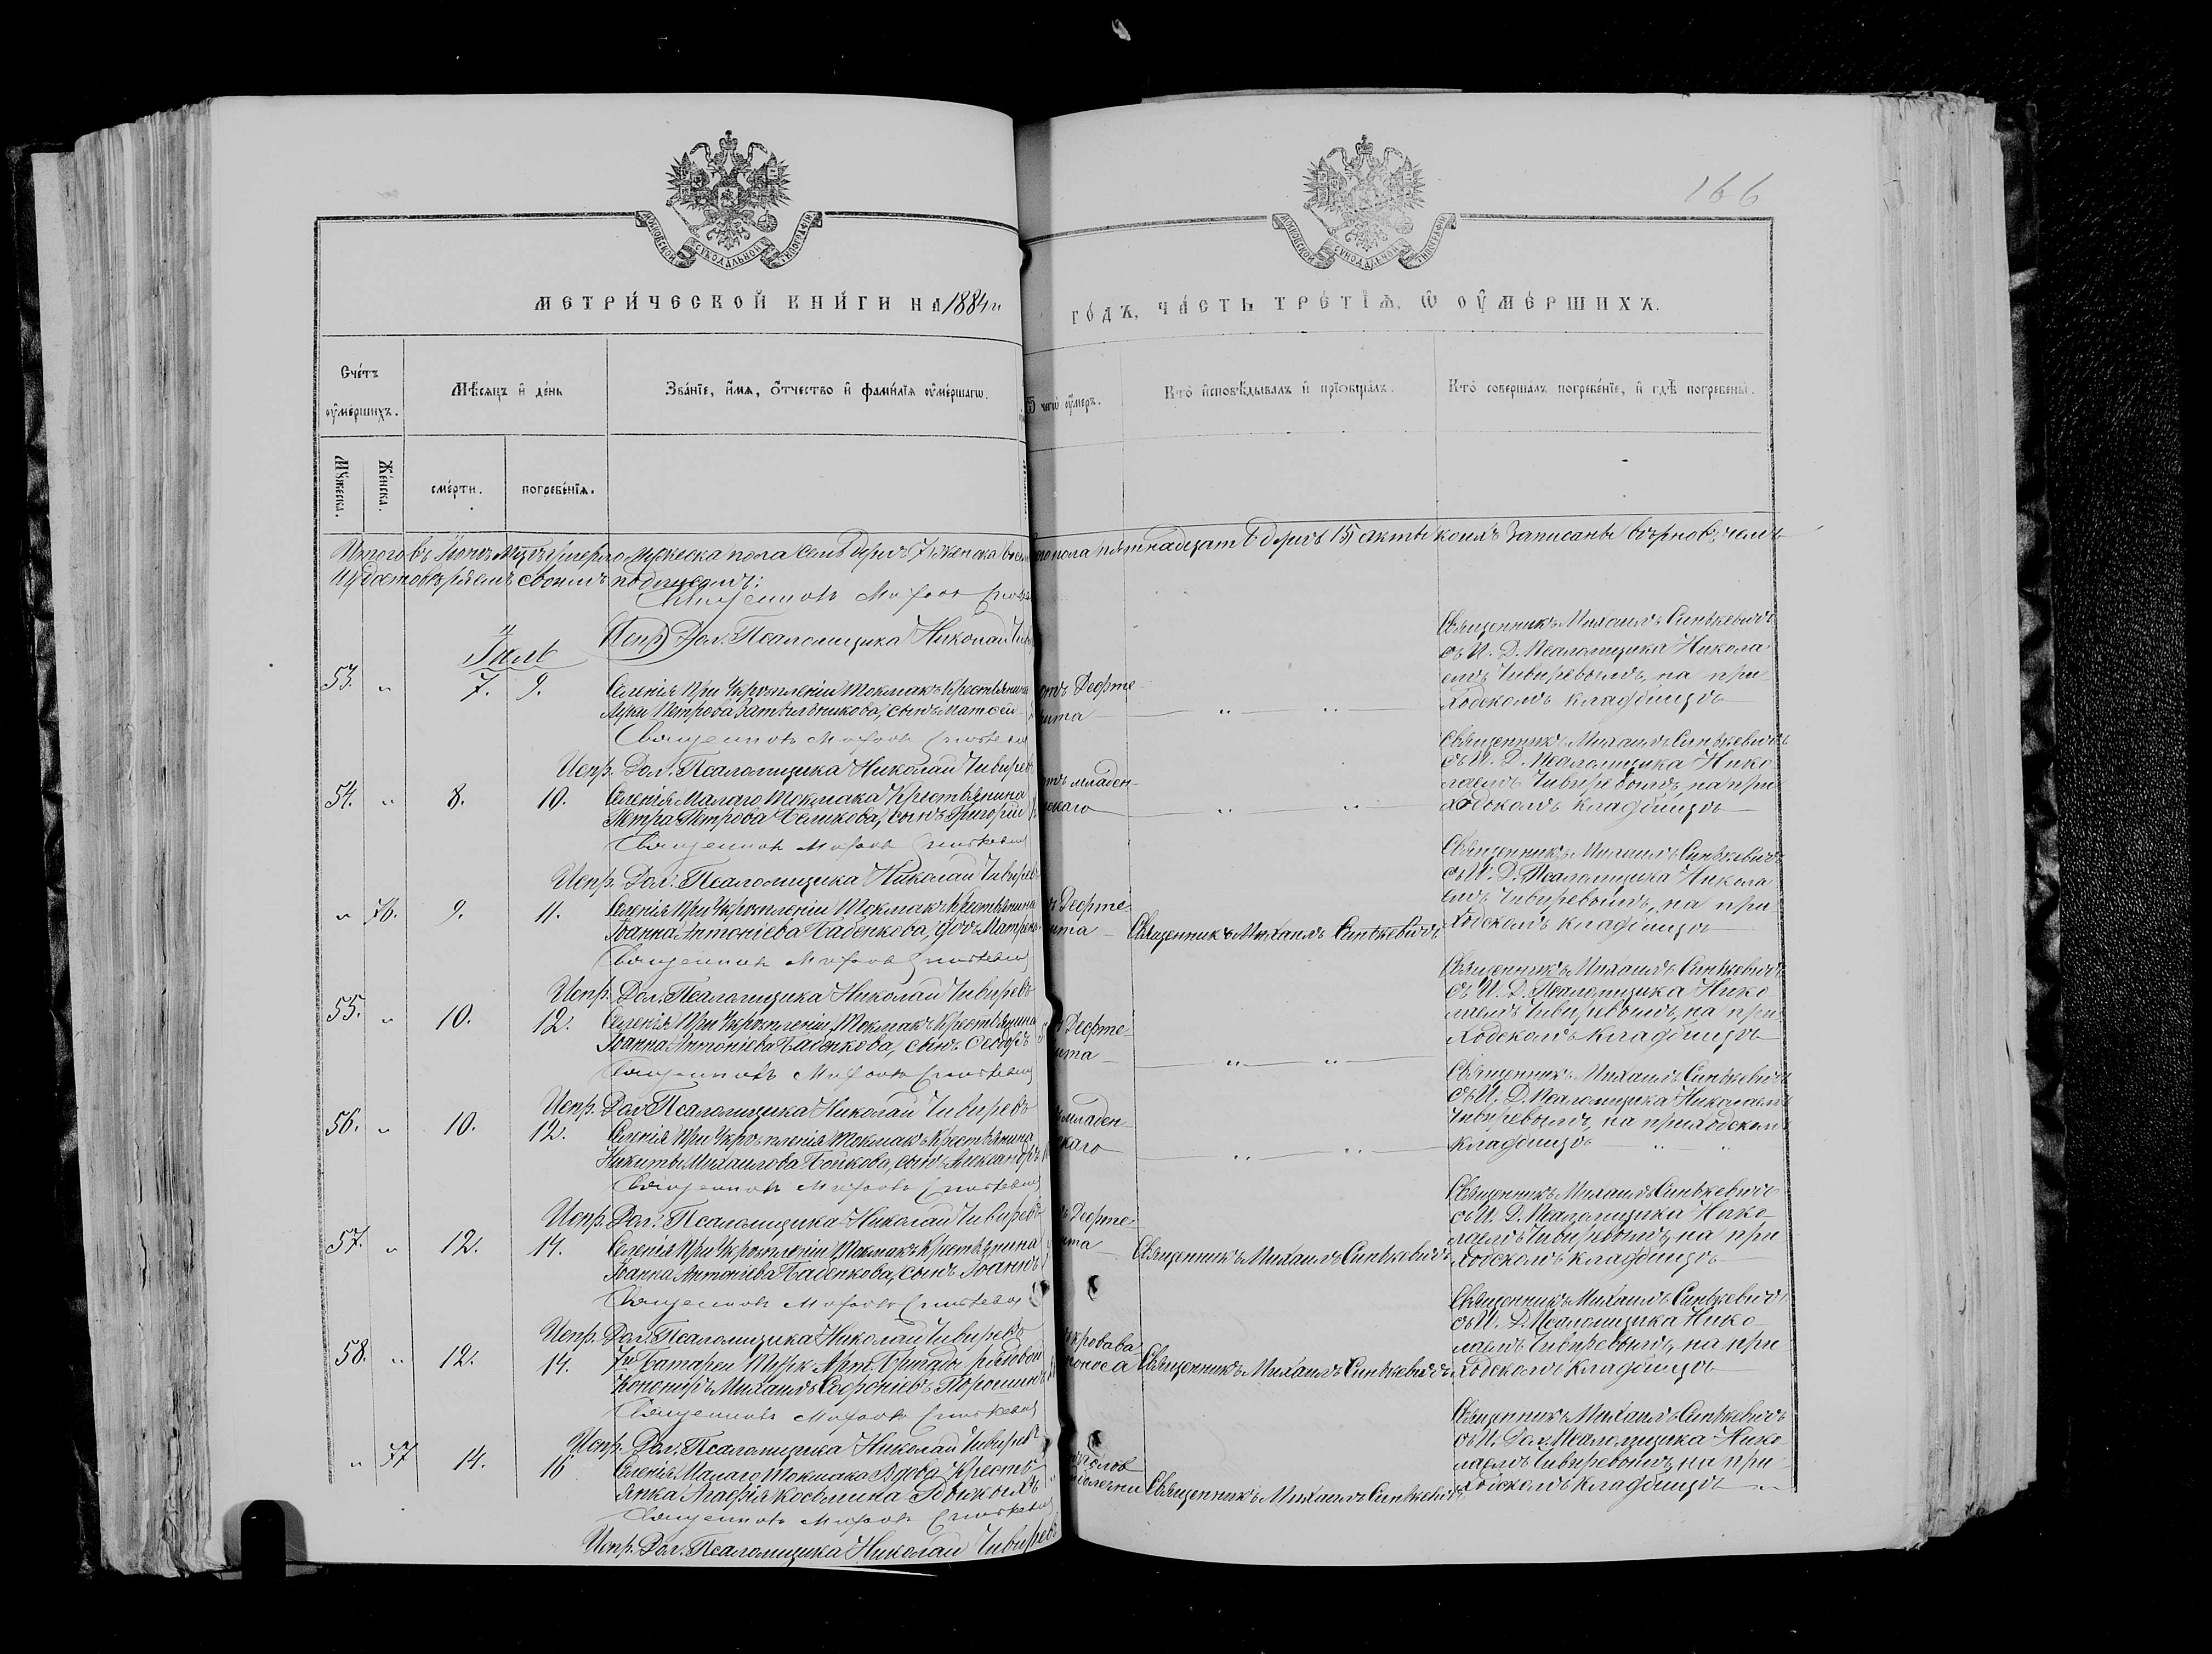 166
МОСКОВСКОЙ СѴНОДАЛЬНОЙ ТИПОГРАФІИ
МОСКОВСКОЙ СѴНОДАЛЬНОЙ ТИПОГРАФІИ
МЕТРИ́ЧЕСКОЙ КНИ́ГИ НА 1884й
ГО́ДЪ, ЧА́СТЬ ТРЕ́ТІѦ, Ѡ ОУ҆МЕ́РШИХЪ.
Сче́тъ
оу҆ме́ршихъ.
Мѣ́сяцъ и҆ де́нь
Зва́нїе, и҆́мѧ, ѻ҆́тчество и҆ фами́лїѧ оу҆ме́ршагѡ.
Ѿ чегѡ̀ оу҆́меръ.
Кто̀ и҆сповѣ́дывалъ и҆ прїѡбща́лъ.
Кто̀ соверша́лъ погребе́нїе, и҆ гдѣ̀ погребены̀.
Мꙋ́жеска.
Же́нска.
сме́рти.
погребе́нїѧ.
Итого въ Іюнѣ м-цѣ умерло мужеска пола семь душъ 7, женска восем
пола пятнадцать душъ 15, акты коихъ записаны вѣрно въ чемъ
и удостовѣряемъ своимъ подписомъ:
Священникъ Михаилъ
Испр. Дол. Псаломщика Николай
Іюль
53. " 7. 9.
Селенія при Укрѣпленіи Токмакъ Крестьянина
Луки Петрова Затыльникова, сынъ Матѳей
отъ Дифте
рита
— " " —
Священникъ Михаилъ Синькевичъ
съ И. Д. Псаломщика Никола
емъ Чивиревымъ, на при
ходскомъ кладбищѣ
Священникъ Михаилъ Синькевичъ
Испр. Дол. Псаломщика Николай Чивиревъ
54. " 8. 10.
Селенія Малаго Токмака Крестьянина
Петра Петрова Беликова, сынъ Григорій
отъ младен
ческаго
" "
Священникъ Михаилъ Синькевичъ
съ И. Д. Псаломщика Нико
лаемъ Чивиревымъ, на при
ходскомъ кладбищѣ
Священникъ Михаилъ Синькевичъ
Испр. Дол. Псаломщика Николай Чивиревъ
" 76. 9. 11.
Селенія при Укрѣпленіи Токмакъ Крестьянина
Іоанна Антоніева Бабенкова, дочь Матрена
Дифте
рита
Священникъ Михаилъ Синькевичъ
Священникъ Михаилъ Синькевичъ
съ И. Д. Псаломщика Никола
емъ Чивиревымъ, на при
ходскомъ кладбищѣ
Священникъ Михаилъ Синькевичъ
Испр. Дол. Псаломщика Николай Чивиревъ
55. " 10. 12.
Селенія при Укрѣпленіи Токмакъ Крестьянина
Іоанна Антоніева Бабенкова, сынъ Ѳеодоръ
Дифте
рита
— " " —
Священникъ Михаилъ Синькевичъ
съ И. Д. Псаломщика Нико
лаемъ Чивиревымъ, на при
ходскомъ кладбищѣ
Священникъ Михаилъ Синькевичъ
Испр. Дол. Псаломщика Николай Чивиревъ
56. " 10. 12.
Селенія при Укрѣпленія Токмакъ Крестьянина
Никиты Михаилова Бойкова, сынъ Александръ
младен
скаго
— " " —
Священникъ Михаилъ Синькевичъ
съ И. Д. Псаломщика Николаемъ
Чивиревымъ, на приходскомъ
кладбищѣ " "
Священникъ Михаилъ Синькевичъ
Испр. Дол. Псаломщика Николай Чивиревъ
57. " 12. 14.
Селенія при Укрѣпленіи Токмакъ Крестьянина
Іоанна Антоніева Бабенкова, сынъ Іоаннъ
Дифте
рита
Священникъ Михаилъ Синькевичъ
Священникъ Михаилъ Синькевичъ
съ И. Д. Псаломщика Нико
лаемъ Чивиревымъ, на при
ходскомъ кладбищѣ
Священникъ Михаилъ Синькевичъ
Испр. Дол. Псаломщика Николай Чивиревъ
58. " 12. 14.
7й Батареи Турк. Арт. Бригады рядовой
Канониръ Михаилъ Софроніевъ Торошинъ
кровава
поноса
Священникъ Михаилъ Синькевичъ
Священникъ Михаилъ Синькевичъ
съ И. Д. Псаломщика Нико
лаемъ Чивиревымъ, на при
ходскомъ кладбищѣ
Священникъ Михаилъ Синькевичъ
Испр. Дол. Псаломщика Николай Чивиревъ
" 77 14. 16
Селенія Малаго Токмака Вдова Кресть
янка Агафія Косьмина
Священникъ Михаилъ Синькевичъ
Священникъ Михаилъ Синькевичъ
съ И. Дол. Псаломщика Нико
лаемъ Чивиревымъ, на при
ходскомъ кладбищѣ "
Священникъ Михаилъ Синькевичъ
Испр. Дол. Псаломщика Николай Чивиревъ